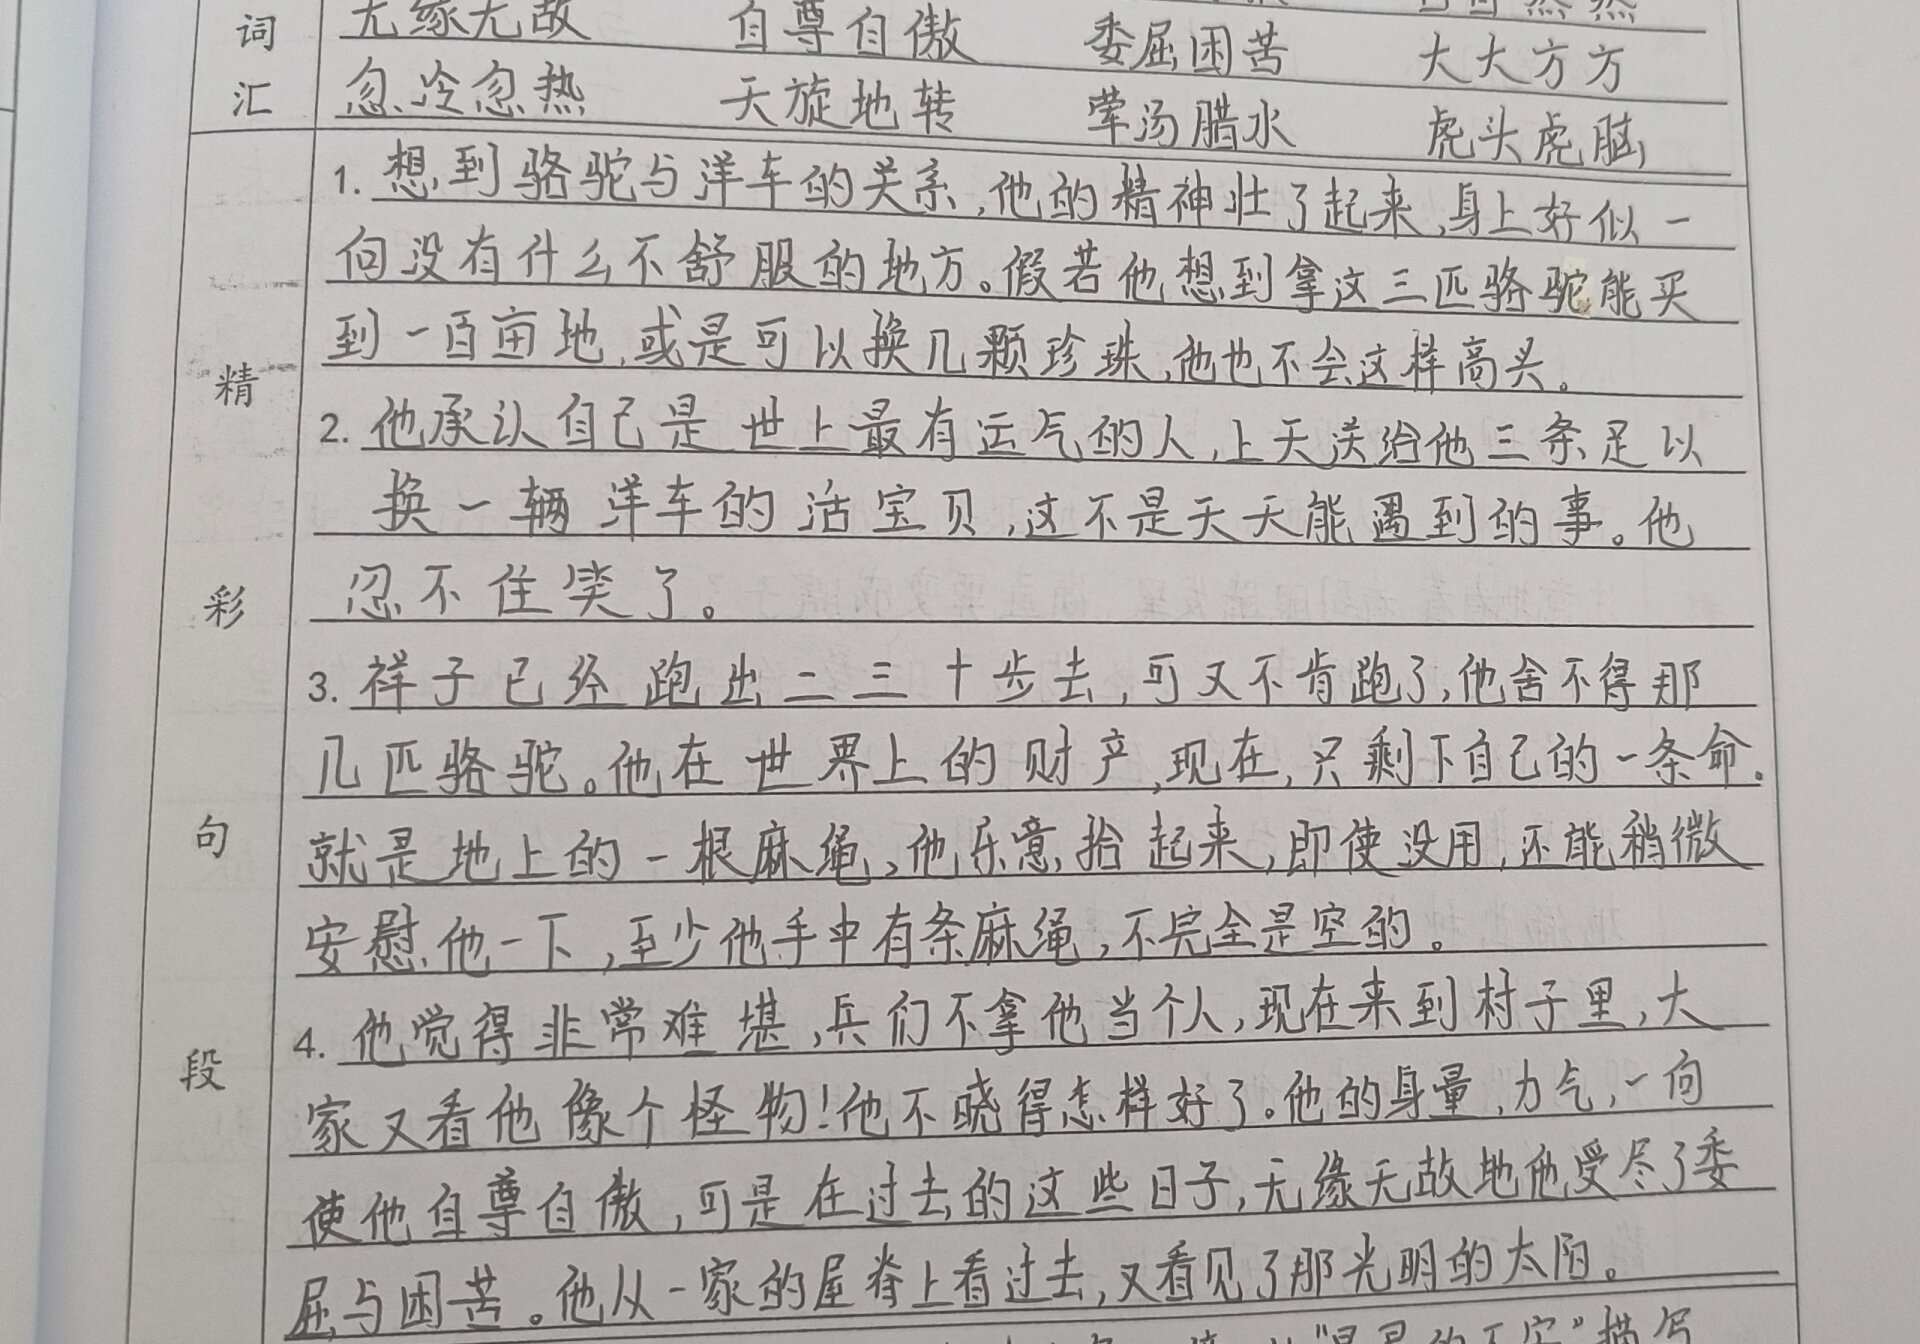 词汇
无缘无故 自尊自傲 委屈困苦 大大方方
忽冷忽热 天旋地转 荤汤腊水 虎头虎脑
精彩句段
1. 想到骆驼与洋车的关系,他的精神壮了起来,身上好似一
向没有什么不舒服的地方。假若他想到拿这三匹骆驼能买
到一百亩地,或是可以换几颗珍珠,他也不会这样高头。
2. 他承认自己是世上最有运气的人,上天送给他三条足以
换一辆洋车的活宝贝,这不是天天能遇到的事。他
忍不住笑了。
3. 祥子已经跑出二三十步去,可又不肯跑了,他舍不得那
几匹骆驼。他在世界上的财产,现在,只剩下自己的一条命。
就是地上的一根麻绳,他乐意拾起来,即使没用,还能稍微
安慰他一下,至少他手中有条麻绳,不完全是空的。
4. 他觉得非常难堪,兵们不拿他当个人,现在来到村子里,大
家又看他像个怪物!他不晓得怎样好了。他的身量,力气,一向
使他自尊自傲,可是在过去的这些日子,无缘无故地他受尽了委
屈与困苦。他从一家的屋脊上看过去,又看见了那光明的太阳。